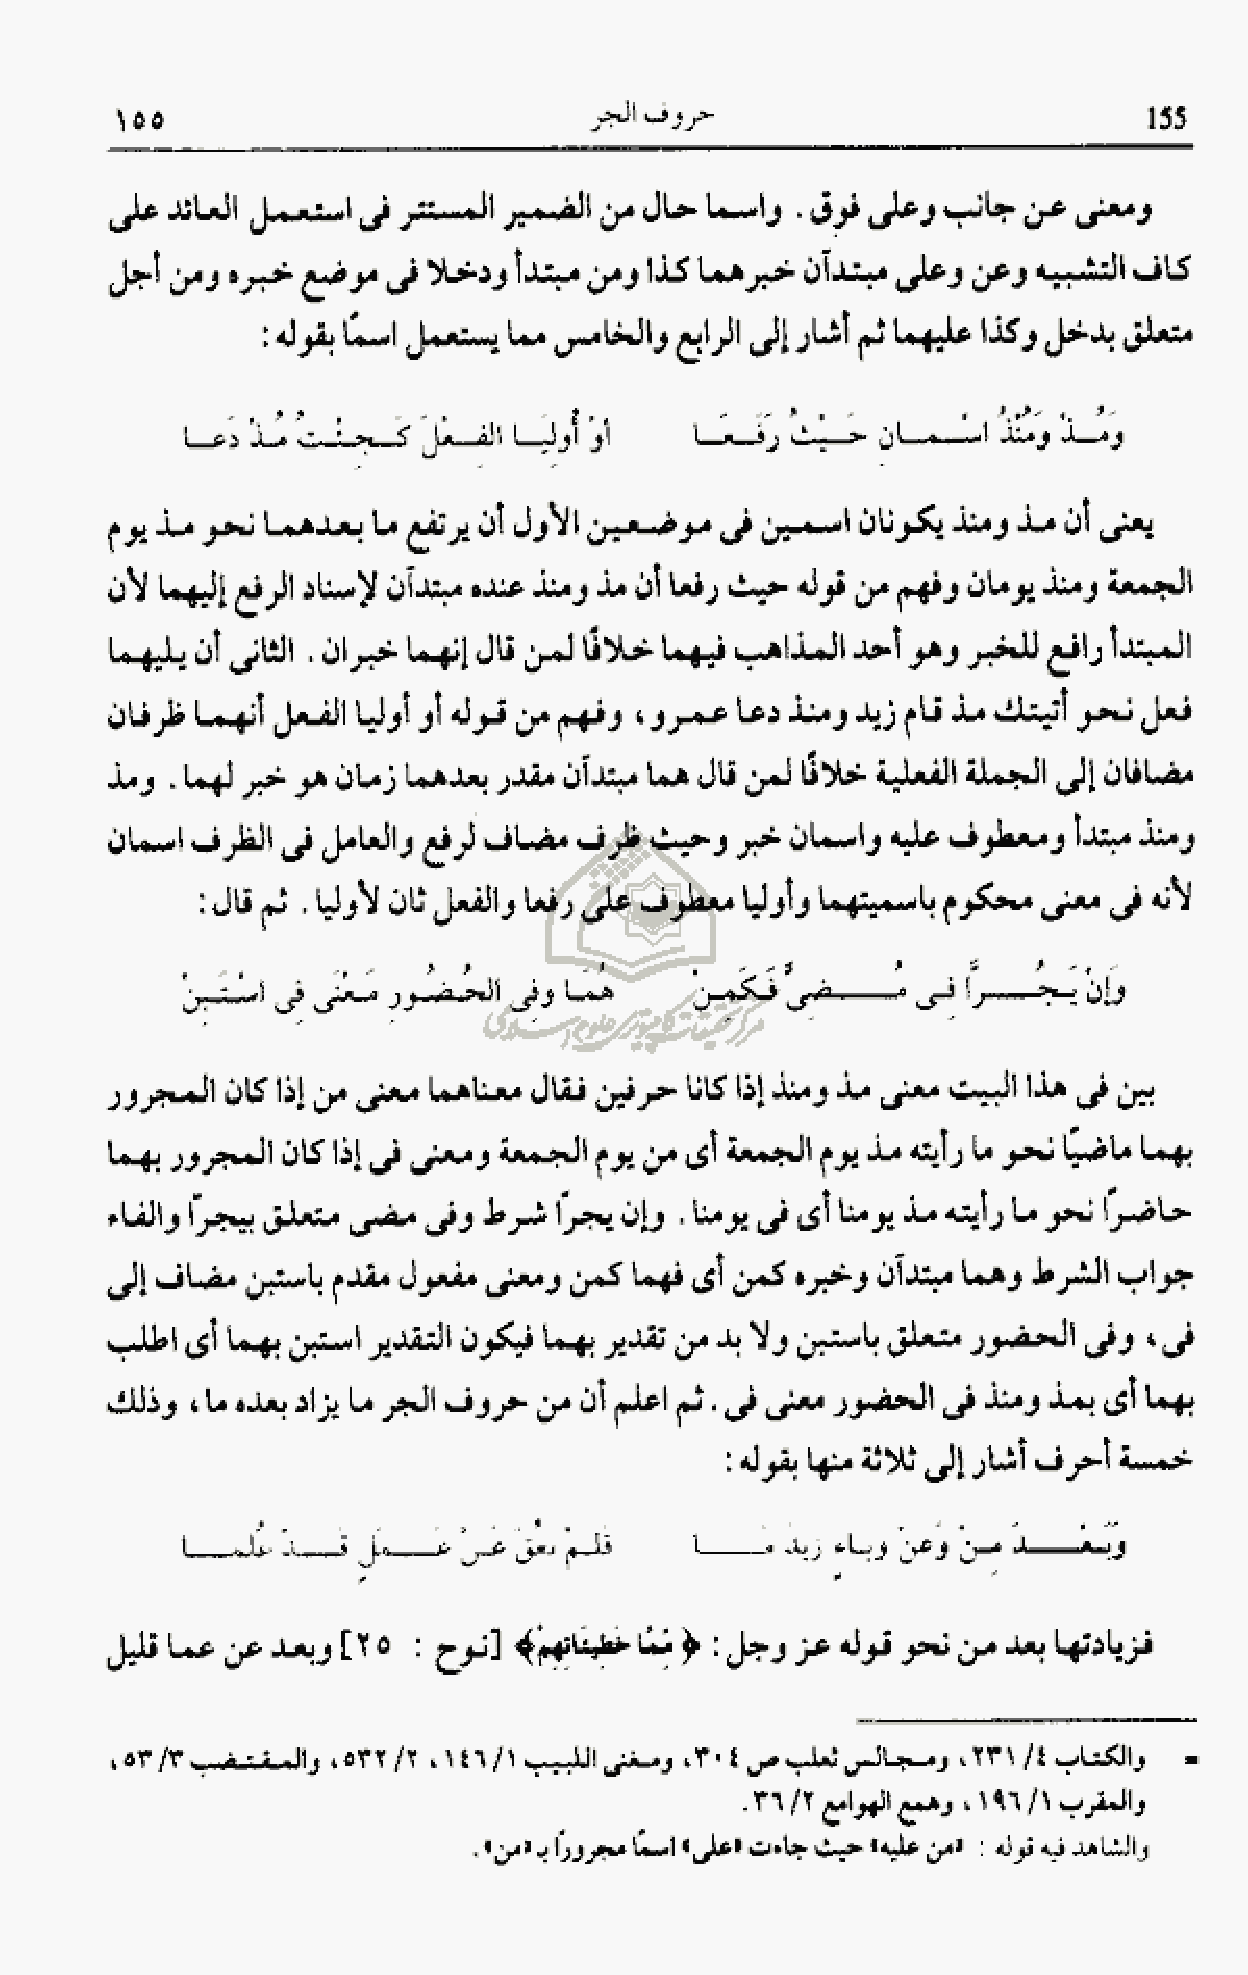 155 حروف الجر ١٥٥
ومعنى عن جانب وعلى فوق . واسما حال من الضمير المستتر فى استعمل العائد على
كاف التشبيه وعن وعلى مبتدآن خبرهما كذا ومن مبتدأ ودخلا فى موضع خبره ومن أجل
متعلق بدخل وكذا عليهما ثم أشار إلى الرابع والخامس مما يستعمل اسمًا بقوله :
وَمُذْ وَمُنْذُ اسْمانِ حَيْثُ رَفَعَا أوْ أُولِيَا الفِعْلَ كَجِئْتُ مُذْ دَعا
يعنى أن مذ ومنذ يكونان اسمين فى موضعين الأول أن يرتفع ما بعدهما نحو مذ يوم
الجمعة ومنذ يومان وفهم من قوله حيث رفعا أن مذ ومنذ عنده مبتدآن لإسناد الرفع إليهما لأن
المبتدأ رافع للخبر وهو أحد المذاهب فيهما خلافًا لمن قال إنهما خبران . الثانى أن يليهما
فعل نحو أتيتك مذ قام زيد ومنذ دعا عمرو ، وفهم من قوله أو أوليا الفعل أنهما ظرفان
مضافان إلى الجملة الفعلية خلافًا لمن قال هما مبتدآن مقدر بعدهما زمان هو خبر لهما . ومذ
ومنذ مبتدأ ومعطوف عليه واسمان خبر وحيث ظرف مضاف لرفع والعامل فى الظرف اسمان
لأنه فى معنى محكوم باسميتهما وأوليا معطوف على رفعا والفعل ثان لأوليا . ثم قال :
وَإنْ يَجُرَّا فِى مُضِىٍّ فَكَمِنْ هُمَا وفِى الحُضُورِ مَعْنَى فِى اسْتَبِنْ
مركز تحقيقات كامپيوترى علوم اسلامى
بين فى هذا البيت معنى مذ ومنذ إذا كانا حرفين فقال معناهما معنى من إذا كان المجرور
بهما ماضيًا نحو ما رأيته مذ يوم الجمعة أى من يوم الجمعة ومعنى فى إذا كان المجرور بهما
حاضرًا نحو ما رأيته مذ يومنا أى فى يومنا . وإن يجرّا شرط وفى مضى متعلق بيجرّا والفاء
جواب الشرط وهما مبتدآن وخبره كمن أى فهما كمن ومعنى مفعول مقدم باستبن مضاف إلى
فى ، وفى الحضور متعلق باستبن ولا بد من تقدير بهما فيكون التقدير استبن بهما أى اطلب
بهما أى بمذ ومنذ فى الحضور معنى فى . ثم اعلم أن من حروف الجر ما يزاد بعده ما ، وذلك
خمسة أحرف أشار إلى ثلاثة منها بقوله :
وَبَعْدَ مِنْ وَعَنْ وباءٍ زيدَ مَا فَلمْ يعُقْ عَنْ عَمَلٍ قَدْ عُلمَا
فزيادتها بعد من نحو قوله عز وجل : ﴿ مِّمَّا خَطِيئَاتِهِمْ﴾ [نوح : ٢٥] وبعد عن عما قليل
= والكتاب ٤/ ٢٣١ ، ومجالس ثعلب ص ٣٠٤ ، ومغنى اللبيب ١/ ١٤٦ ، ٢/ ٥٣٢ ، والمقتضب ٣/ ٥٣ ،
والمقرب ١/ ١٩٦ ، وهمع الهوامع ٢/ ٣٦ .
والشاهد فيه قوله : «من عليه» حيث جاءت «على» اسمًا مجرورًا بـ «من» .